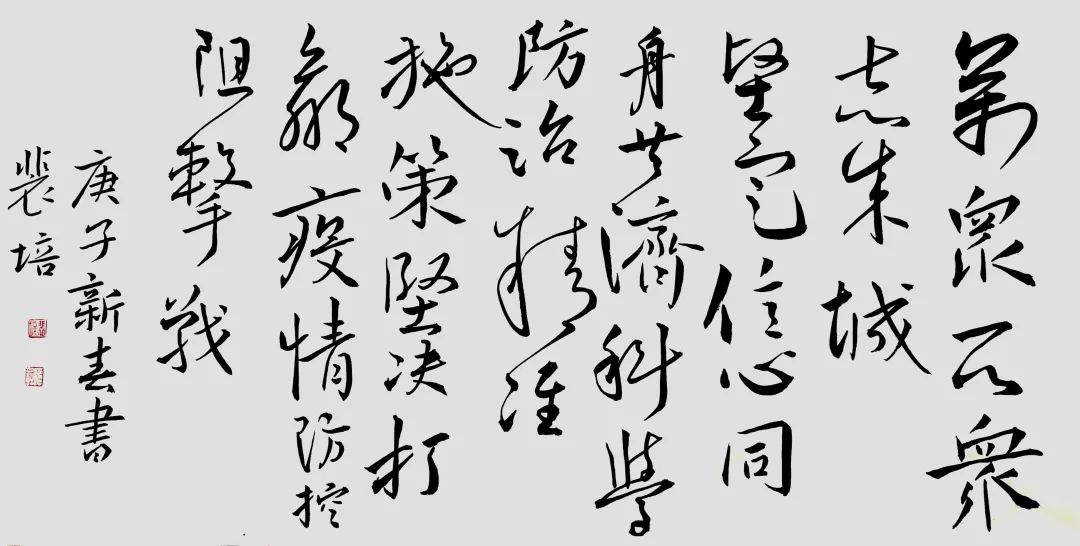 萬眾一心眾
志成城
堅定信心同
舟共濟科學
防治精准
施策堅决打
贏疫情防控
阻擊戰
庚子新春書
裴培